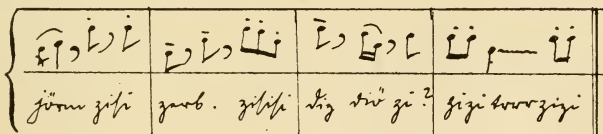 zisi zerb. zisisi diz diö zi? zizitrrrzizi